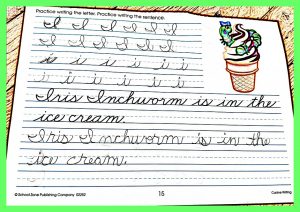 Practice writing the letter. Practice writing the sentence.
I I I I I I
I I I I I I
i i i i i i i
i i i i i i i
Iris Inchworm is in the
ice cream.
Iris Inchworm is in the
ice cream.
© School Zone Publishing Company 02092 15 Cursive Writing